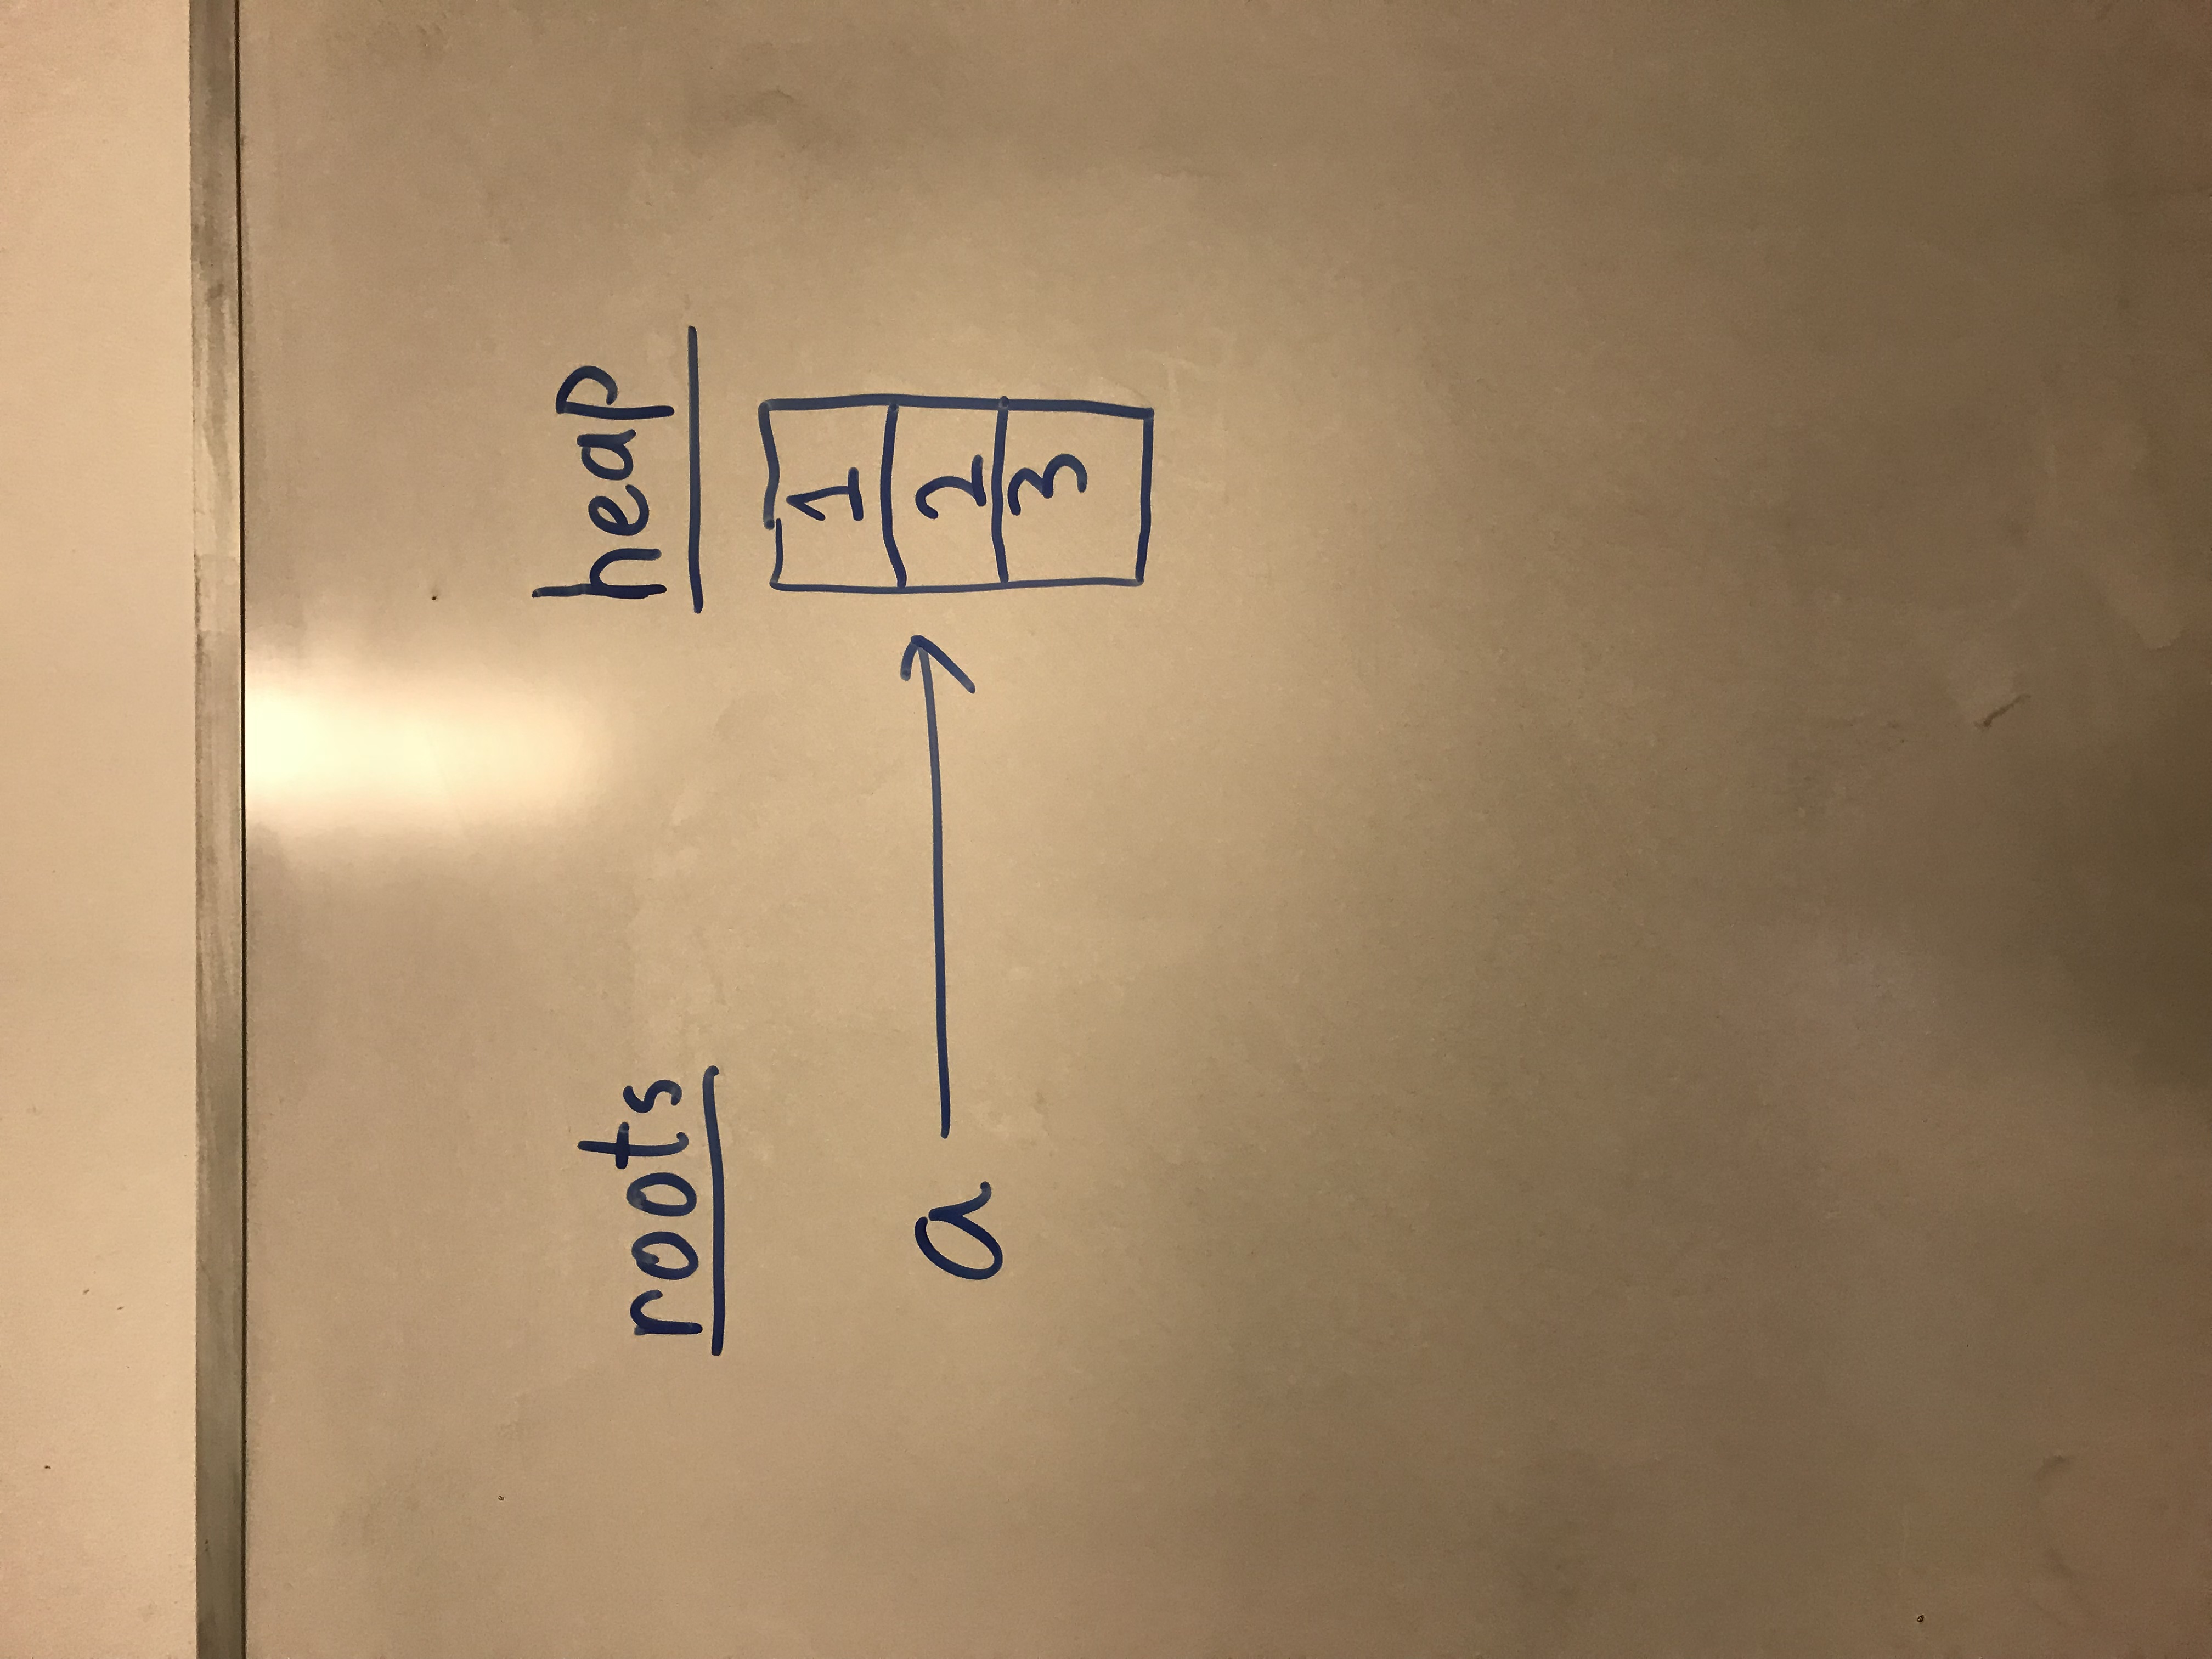 roots
heap
1
a
2
3